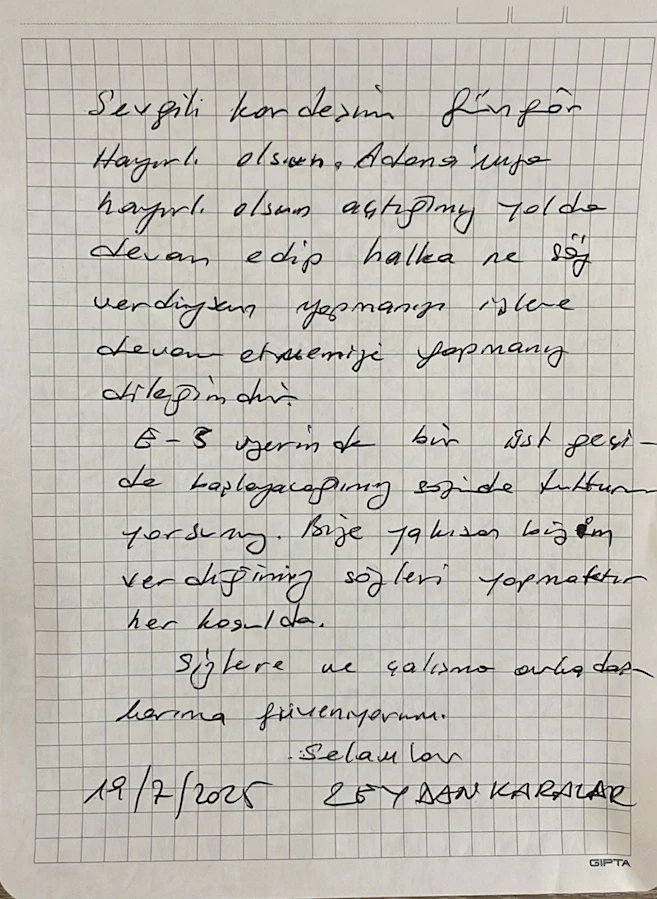 Sevgili kardeşim Güngör
Hayırlı olsun. Adana'mıza
hayırlı olsun açtığımız yolda
devam edip halka ne söz
verdiysem yapmanızı işlere
devam etmenizi yapmanız
dileğimdir.
E-5 üzerinde bir üst geçi-
de başlayacağımız sözünde tuttun
yorsunuz. Bize yakışan bizim
verdiğimiz sözleri yapmaktır
her koşulda.
Sizlere ve çalışma arkadaş-
larıma güveniyorum.
Selamlar
19/7/2025 ZEYDAN KARALAR
GIPTA